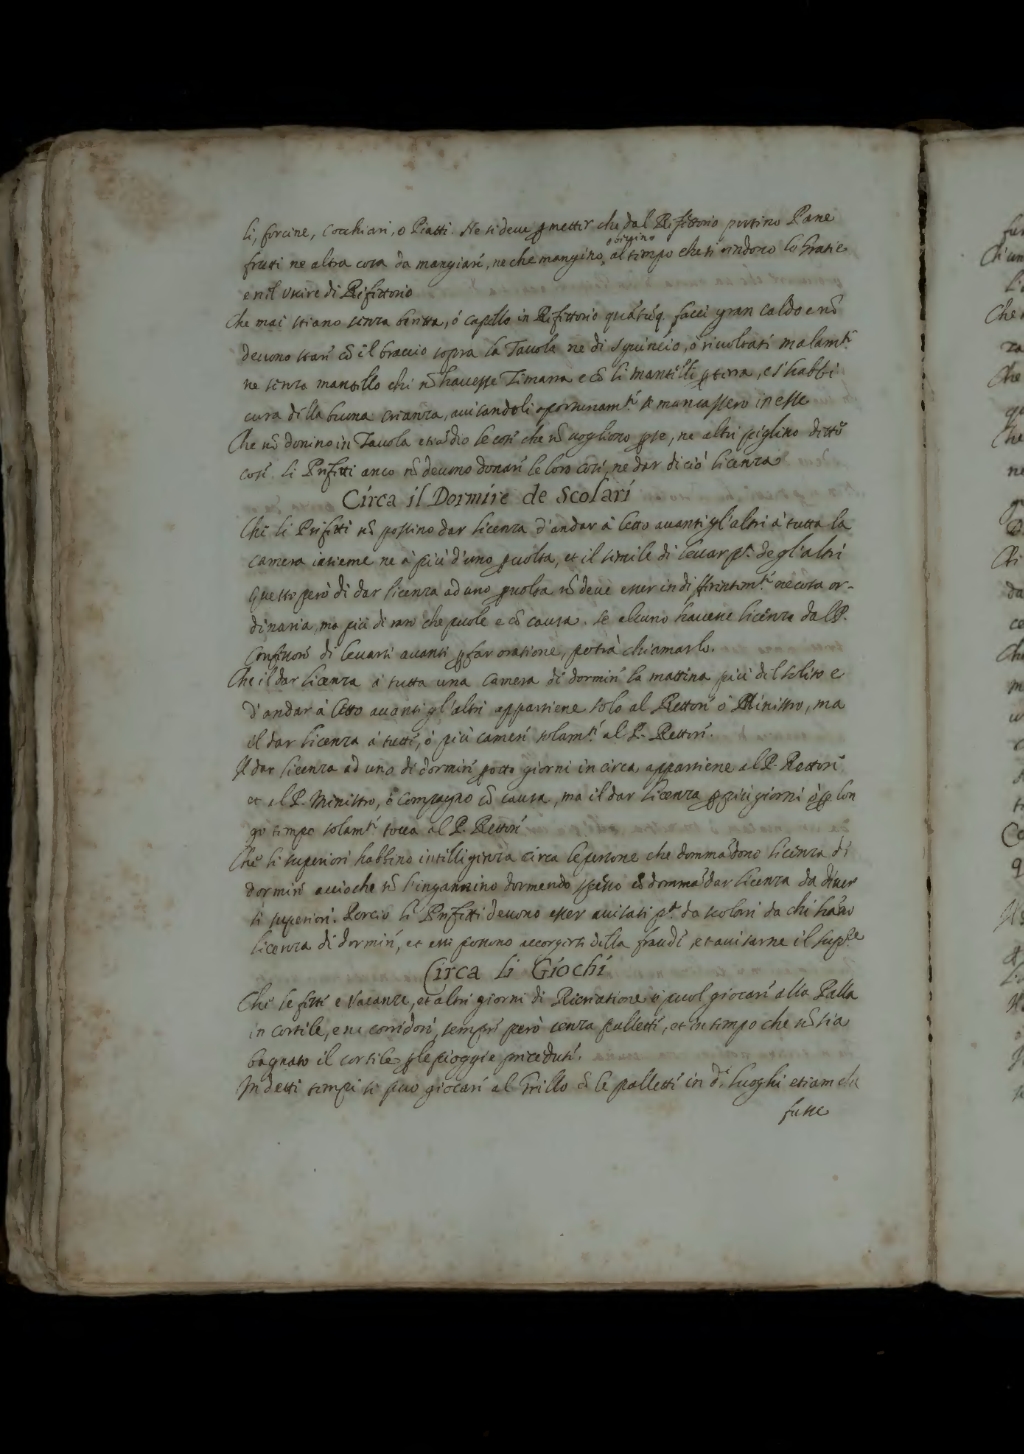 li, forcine, Cocchiari, o Piatti. Ne si deve ꝑmetter che dal Rifettorio portino Pane
porgino
frutti ne altra cosa da mangiare, ne che mangino, al tempo che si rendono le Gratie
e nel Uscire di Rifettorio
Che mai stiano senza beretta, ó capello in Rifettorio facci gran caldo e nō
devono stare cō il braccio sopra la Tavola ne di Squincio, o rivoltati malamte.
ne senza mantello chi nō havesse Zimarra e cō li mantelli ꝑ terra, e s'habbi
cura della buona Crianza, avisandoli oportunamte. se mancassero in esse
Che nō donino in Tavola le cose che nō vogliono ꝑ se, ne altri piglino dette
cose. Li Prefetti anco nō devono donare le loro cose, ne dar di ciò licenza
Circa il Dormire de Scolari
Che li Prefetti nō possino dar licenza d'andar à letto avanti gl'altri à tutta la
camera insieme ne à più d'uno ꝑ volta, et il simile di levar pa. de gl'altri
Questo però di dar licenza ad uno ꝑ volta nō deve esser indifferentemte. ne cosa or-
dinaria, ma più di raro che puole e cō causa. Se alcuno havesse licenza dal P.
Confessore di levarsi avanti ꝑ far oratione, potrà chiamarlo.
Che il dar licenza à tutta una Camera di dormire la mattina più del solito e
d'andar à letto avanti gl'altri appartiene solo al Rettore ò Ministro, ma
il dar licenza à tutti, ò più camere solamte. al P. Rettore.
Il dar licenza ad uno di dormire ꝑ otto giorni in circa, appartiene al P. Rettore
et al P. Ministro, ò Compagno cō causa, ma il dar licenza ꝑ più giorni ò ꝑ lon
go tempo solamte. tocca al P. Rettore
Che li superiori habbino intelligenza circa le persone che dommādono licenza di
dormire acciochè nō l'ingannino dormendo spesso cō dommādar licenza da diver
si superiori. Perciò li Prefetti devono esser avisati pa. da scolari da chi hāno
licenza di dormire, et essi possono accorgersi della fraude et avisarne il supre
Circa li Giochi
Che le feste e Vacanze, et altri giorni di Ricreatione si puol giocare alla Palla
in cortile, e ne corridori, sempre però senza pallette, et in tempo che nō sia
bagnato il cortile ꝑ le pioggie precedute.
In detti tempi si puo giocare al Trillo cō le pallette in di. luoghi etiam che
fusse